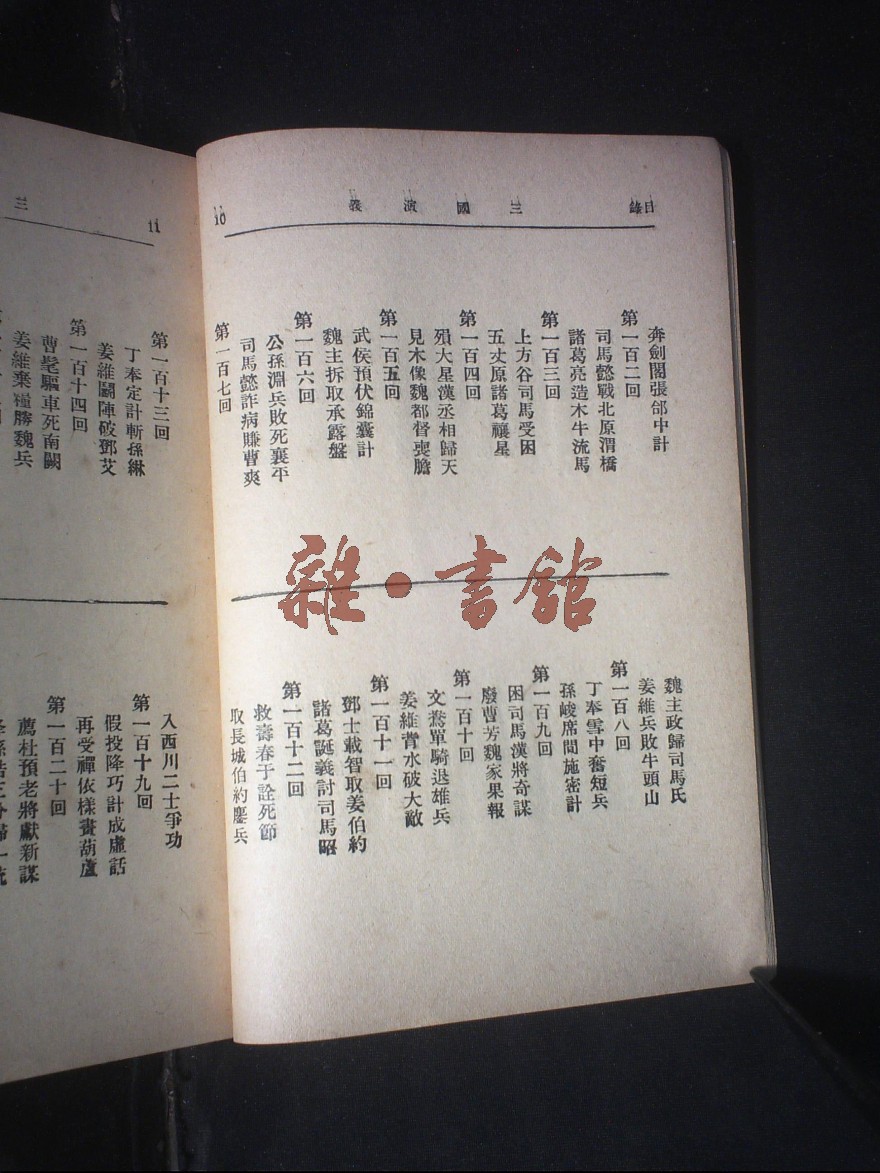 目錄
三國演義
10
奔劍閣張郃中計
第一百二回
司馬懿戰北原渭橋
諸葛亮造木牛流馬
第一百三回
上方谷司馬受困
五丈原諸葛禳星
第一百四回
殞大星漢丞相歸天
見木像魏都督喪膽
第一百五回
武侯預伏錦囊計
魏主拆取承露盤
第一百六回
公孫淵兵敗死襄平
司馬懿詐病賺曹爽
第一百七回
魏主政歸司馬氏
姜維兵敗牛頭山
第一百八回
丁奉雪中奮短兵
孫峻席間施密計
第一百九回
困司馬漢將奇謀
廢曹芳魏家果報
第一百十回
文鴦單騎退雄兵
姜維背水破大敵
第一百十一回
鄧士載智取姜伯約
諸葛誕義討司馬昭
第一百十二回
救壽春于詮死節
取長城伯約鏖兵
三
11
第一百十三回
丁奉定計斬孫綝
姜維鬭陣破鄧艾
第一百十四回
曹髦驅車死南闕
姜維棄糧勝魏兵
入西川二士爭功
第一百十九回
假投降巧計成虛話
再受禪依樣畫葫蘆
第一百二十回
薦杜預老將獻新謀
雜·書館